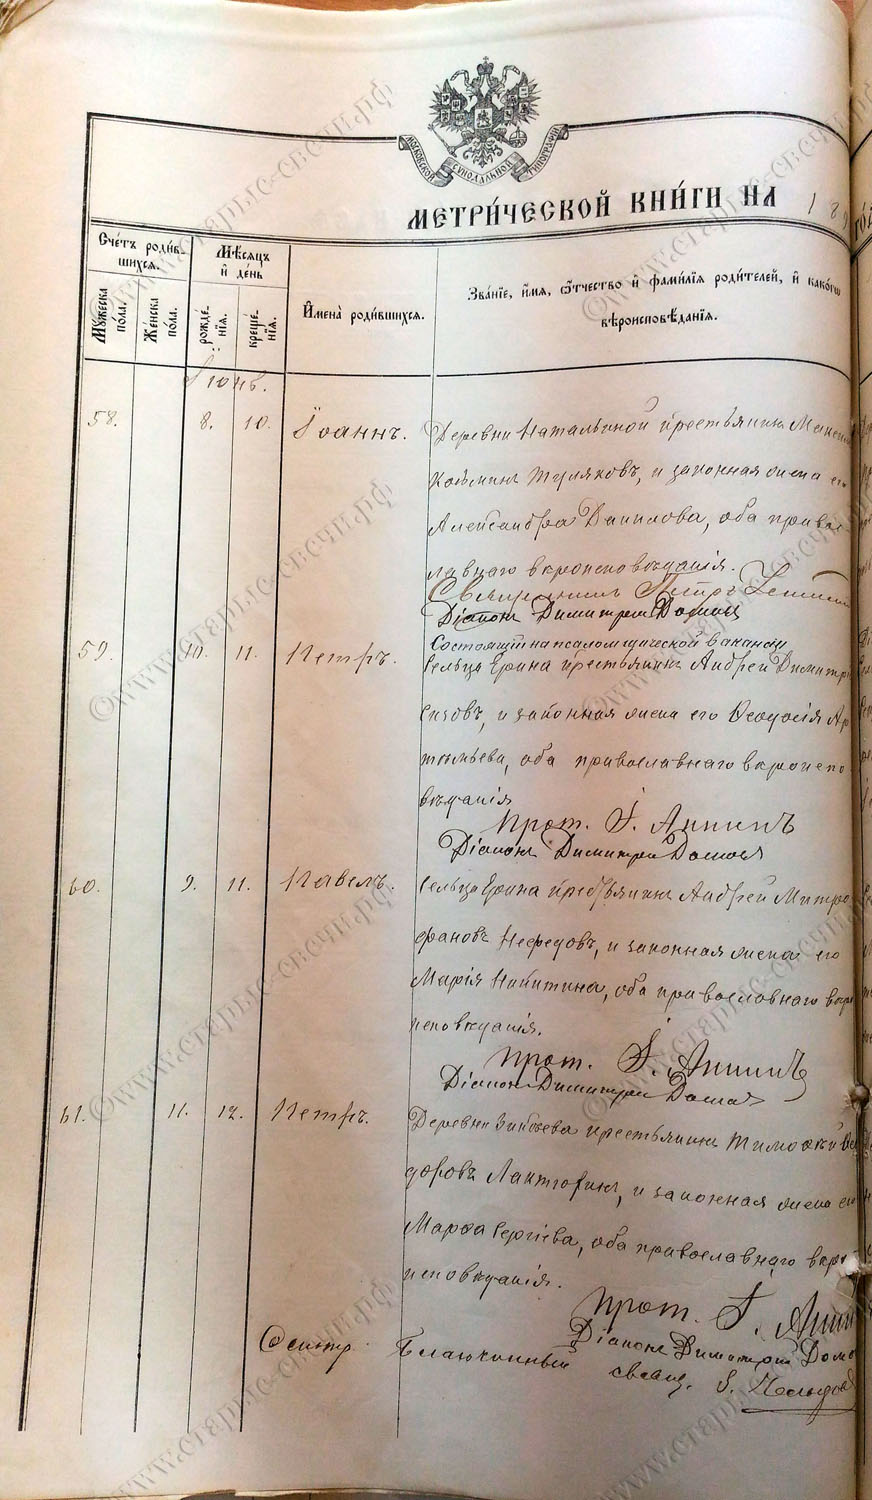 МОСКОВСКОЙ СѴНОДАЛЬНОЙ ТИПОГРАФІИ
МЕТРИ́ЧЕСКОЙ КНИ́ГИ НА 18
Сче́тъ роди́в-
шихся.
Мꙋ́жеска
по́ла.
Же́нска
по́ла.
Мѣ́сяцъ
и҆ де́нь
рожде́-
нїя.
креще́-
нїя.
И҆мена̀ роди́вшихся.
Зва́нїе, и҆́мя, ѻ҆́тчество и҆ фами́лїя роди́телей, и҆ како́гѡ
вѣроисповѣ́данїя.
Іюнь.
58. 8. 10. Іоаннъ.
Деревни Натальиной крестьянинъ
Козминъ Туляковъ, и законная жена его
Александра Данилова, оба правос-
лавнаго вѣроисповѣданія.
Священникъ Петръ
Діаконъ Димитрій
Состоящій на псаломщической вакансіи
59. 10. 11. Петръ.
Сельца Ерина крестьянинъ Андрей Димитрі
Сизовъ, и законная жена его Ѳеодосія Ар-
темьева, оба православнаго вѣроиспо-
вѣданія
Прот. І. Аннинъ
Діаконъ Димитрій
60. 9. 11. Павелъ.
Сельца Ерина крестьянинъ Андрей Митро-
фановъ Нефедовъ, и законная жена его
Марія Никитина, оба православнаго вѣро
исповѣданія.
Прот. І. Аннинъ
Діаконъ Димитрій
61. 11. 12. Петръ.
Деревни крестьянинъ Тимоѳей Ѳе
доровъ и законная жена его
Марѳа Сергіева, оба православнаго вѣро
исповѣданія.
Прот. І. Анни
Діаконъ Димитрій
Осмотр. Благочинный
свящ. І.
©www.старые-свечи.рф